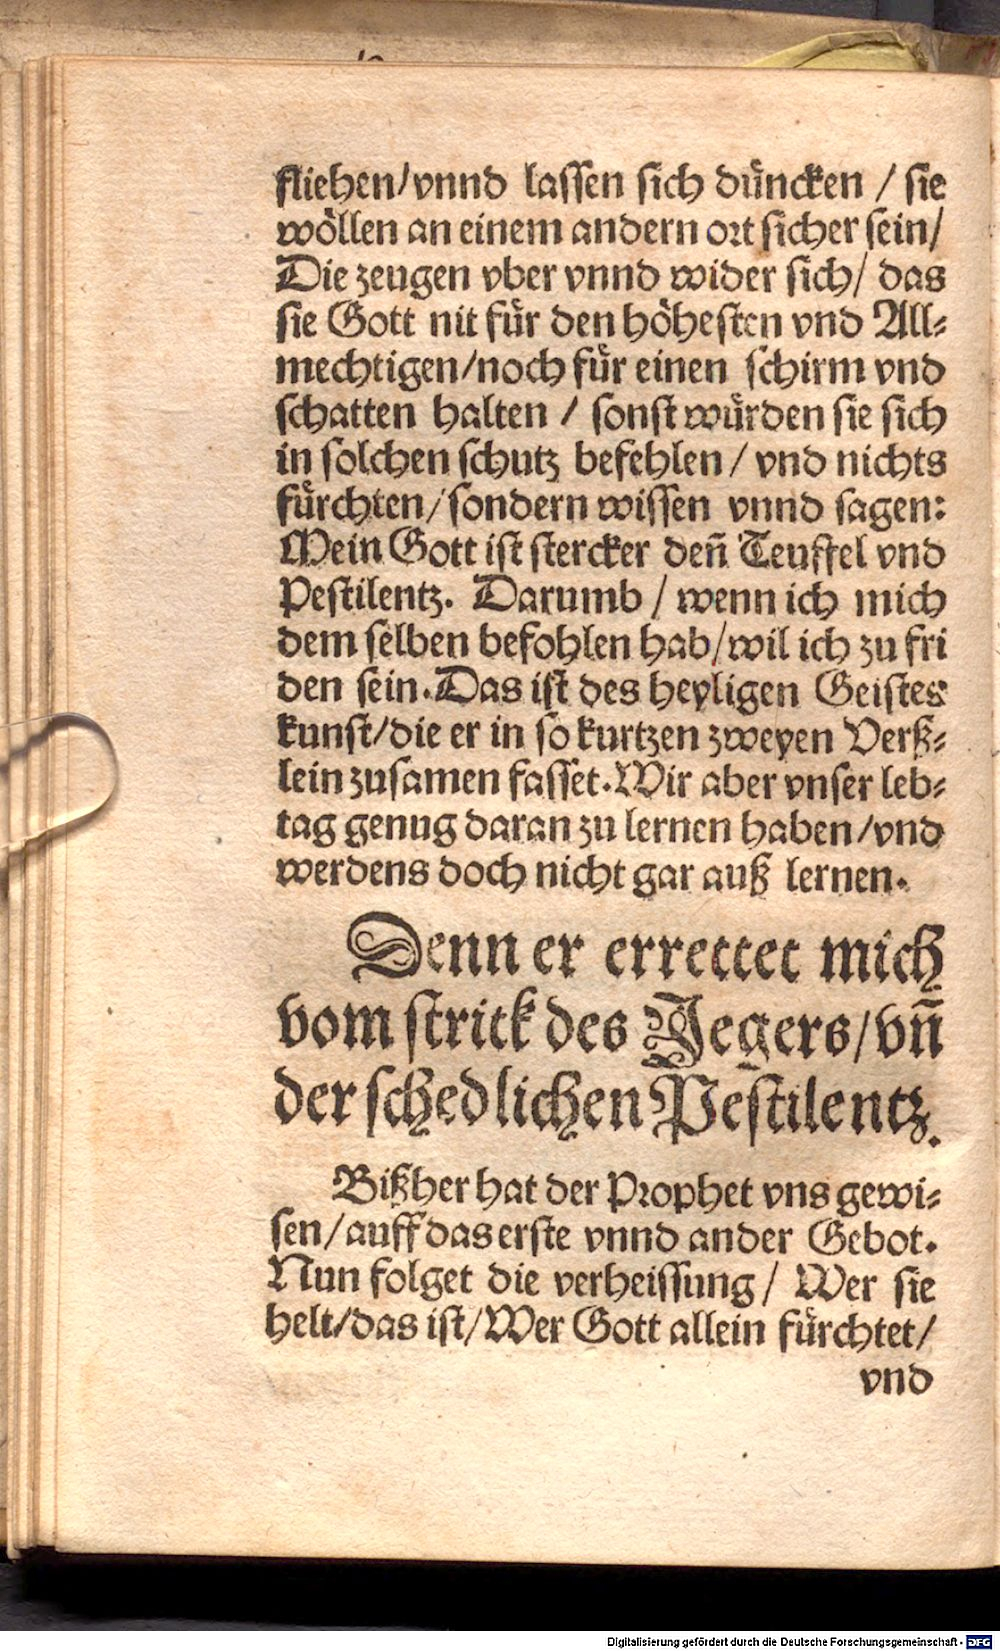 fliehen/vnnd lassen sich düncken / sie
wöllen an einem andern ort sicher sein/
Die zeugen vber vnnd wider sich/ das
sie Gott nit für den höhesten vnd All-
mechtigen/noch für einen schirm vnd
schatten halten / sonst würden sie sich
in solchen schutz befehlen / vnd nichts
fürchten/sondern wissen vnnd sagen:
Mein Gott ist stercker deñ Teuffel vnd
Pestilentz. Darumb / wenn ich mich
dem selben befohlen hab/wil ich zu fri
den sein. Das ist des heyligen Geistes
kunst/die er in so kurtzen zweyen Verß-
lein zusamen fasset. Wir aber vnser leb-
tag genug daran zu lernen haben/vnd
werdens doch nicht gar auß lernen.
Denn er errettet mich
vom strick des Jegers/vñ
der schedlichen Pestilentz.
Bißher hat der Prophet vns gewi-
sen/auff das erste vnnd ander Gebot.
Nun folget die verheissung/ Wer sie
helt/das ist/Wer Gott allein fürchtet/
vnd
Digitalisierung gefördert durch die Deutsche Forschungsgemeinschaft - DFG